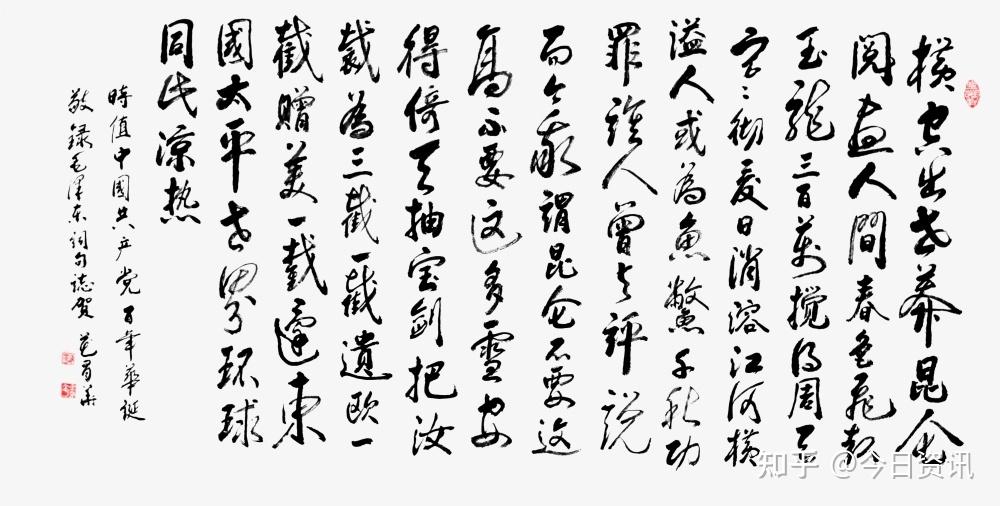 横空出世莽昆仑
閱尽人間春色飛起
玉龍三百萬搅得周天
寒彻夏日消溶江河横
溢人或為魚鱉千秋功
罪誰人曾与評説
而今我謂昆仑不要这
高不要这多雪安
得倚天抽宝剑把汝
裁為三截一截遺欧一
截贈美一截還東
國太平世界环球
同此凉热
時值中國共产党百年華诞
敬録毛澤东词句誌贺
知乎 @今日资讯